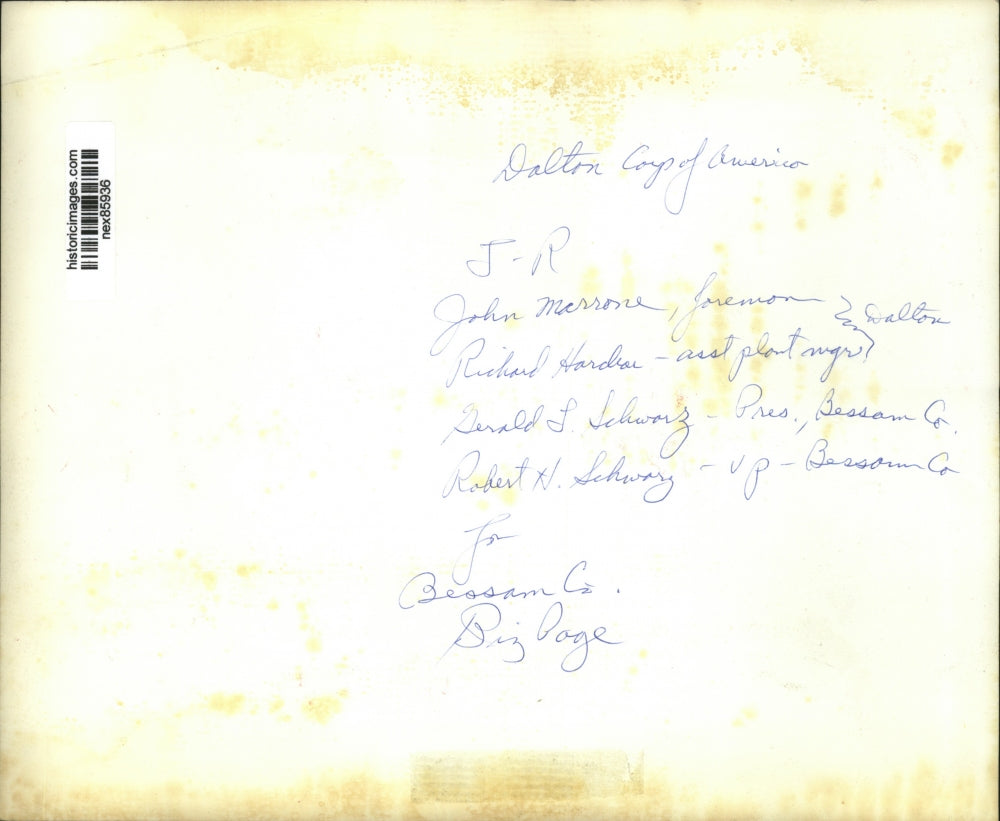 historicimages.com
nex85936
Dalton Corp of America
J-R
John Marrone, foreman } Dalton
Richard - asst plant mgr
Gerald J. Schwarz - Pres., Bessam Co.
Robert H. Schwarz - VP - Bessam Co
for
Bessam Co.
Biz Page